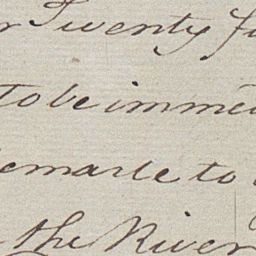 Twenty
To be imme
emarle to
the River